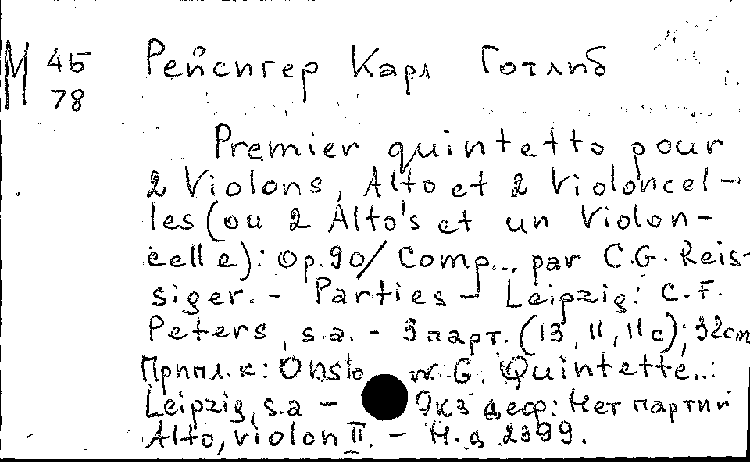 М 45 Рейсигер Карл Готлиб
78
Premier quintetto pour
2 Violons, Alto et 2 Violoncel-
les (ou 2 Alto's et un Violon-
celle): Op. 90/ Comp... par C.G. Reis-
siger. - Parties - Leipzig: C.F.
Peters, s.a. - 3 парт. (13, 11, 11 с); 32cm
Припл. к: Onslow G. Quintette..:
Leipzig, s.a - Экз деф: Нет партий
Alto, violon II. - Н.д 2399.